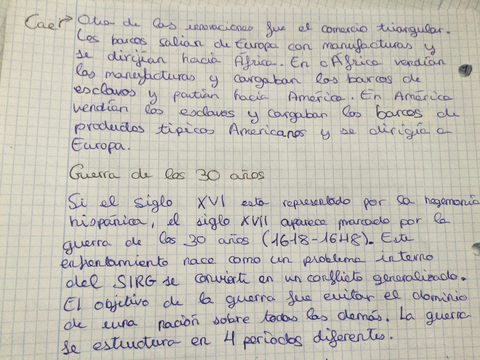 Caer → Otra de las innovaciones fue el comercio triangular.
Los barcos salían de Europa con manufacturas y
se dirijían hacia África. En África vendían
las manufacturas y cargaban los barcos de
esclavos y partían hacia América. En América
vendían los esclavos y cargaban los barcos de
productos típicos Americanos y se dirigía a
Europa.
Guerra de los 30 años
Si el siglo XVI esta representado por la hegemonía
hispánica, el siglo XVII aparece marcado por la
guerra de los 30 años (1618-1648). Este
enfrentamiento nace como un problema interno
del SIRG se convierte en un conflicto generalizado.
El objetivo de la guerra fue evitar el dominio
de una nación sobre todas las demás. La guerra
se estructura en 4 periodos diferentes.